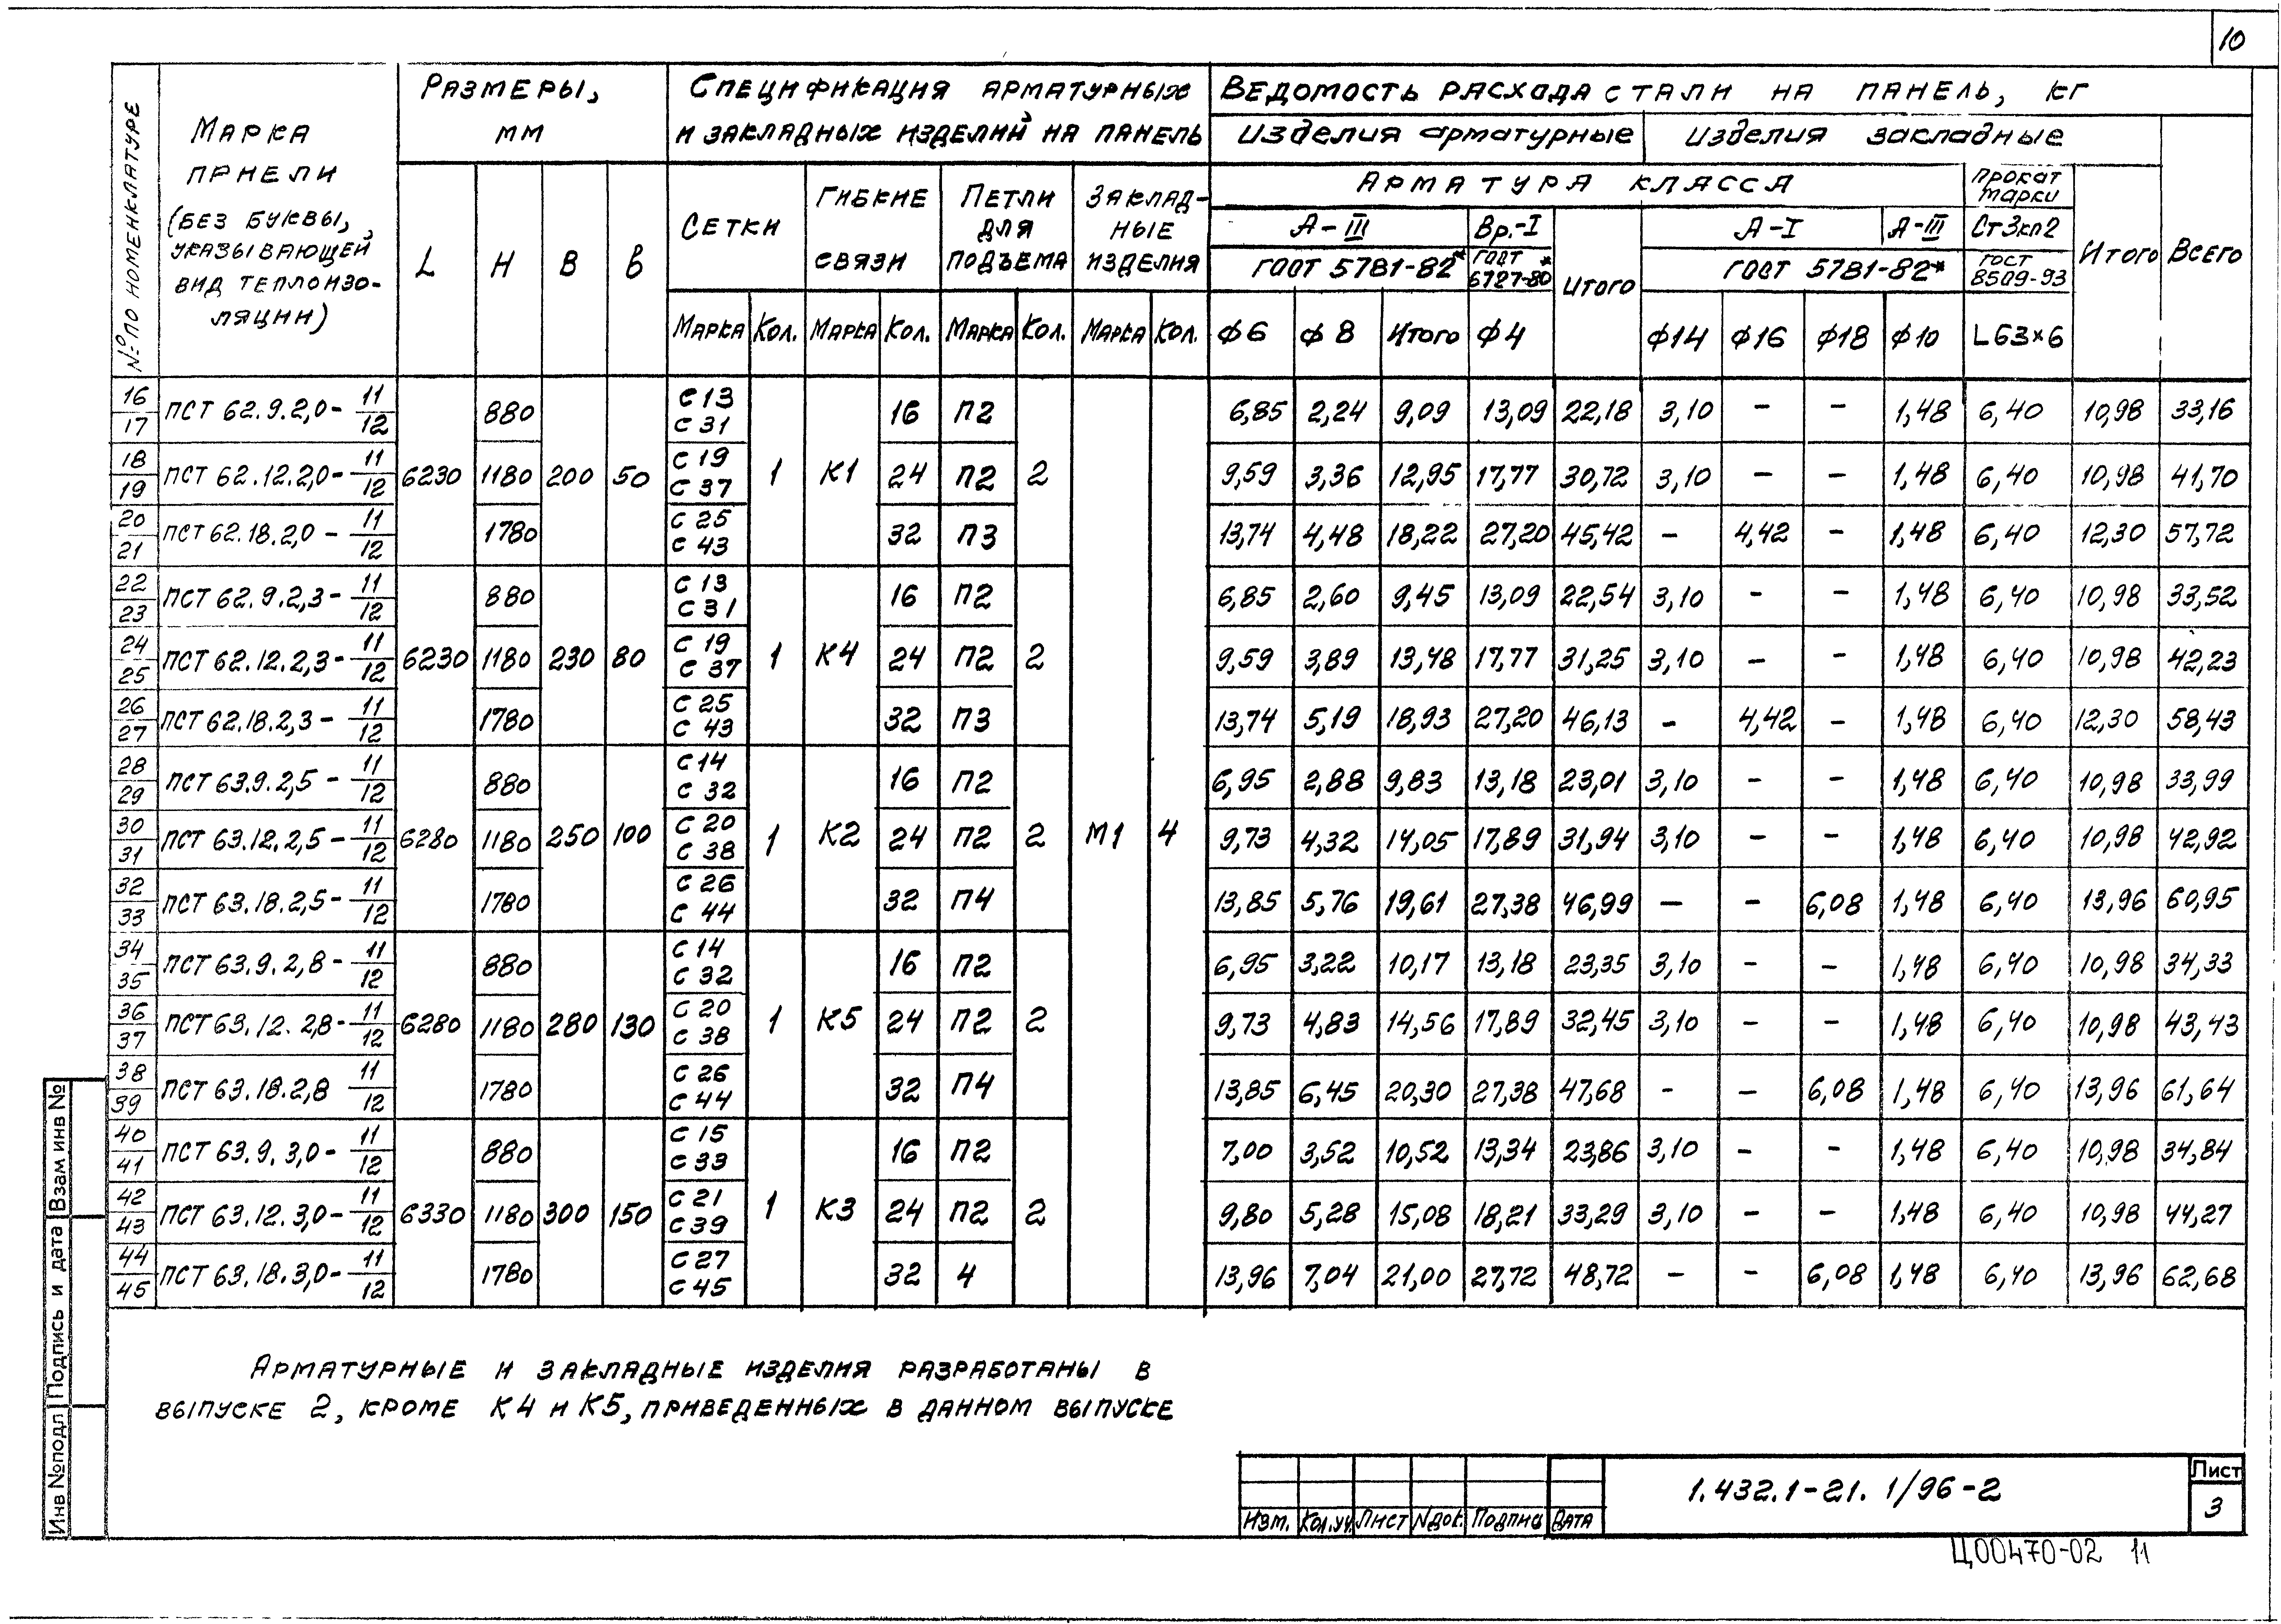 10
№ ПО НОМЕНКЛАТУРЕ
МАРКА
ПАНЕЛИ
(БЕЗ БУКВЫ,
УКАЗЫВАЮЩЕЙ
ВИД ТЕПЛОИЗО-
ЛЯЦИИ)
РАЗМЕРЫ,
ММ
L H B b
СПЕЦИФИКАЦИЯ АРМАТУРНЫХ
И ЗАКЛАДНЫХ ИЗДЕЛИЙ НА ПАНЕЛЬ
СЕТКИ
ГИБКИЕ
СВЯЗИ
ПЕТЛИ
ДЛЯ
ПОДЪЕМА
ЗАКЛАД-
НЫЕ
ИЗДЕЛИЯ
МАРКА КОЛ. МАРКА КОЛ. МАРКА КОЛ. МАРКА КОЛ.
ВЕДОМОСТЬ РАСХОДА СТАЛИ НА ПАНЕЛЬ, КГ
ИЗДЕЛИЯ АРМАТУРНЫЕ ИЗДЕЛИЯ ЗАКЛАДНЫЕ
АРМАТУРА КЛАССА
ПРОКАТ
МАРКИ
А-III Вр.-I А-I А-III Ст3кп2
ГОСТ 5781-82* ГОСТ 6727-80* ИТОГО ГОСТ 5781-82* ГОСТ 8509-93 ИТОГО ВСЕГО
Ф6 Ф8 ИТОГО Ф4 Ф14 Ф16 Ф18 Ф10 L63×6
16 17 ПСТ 62.9.2,0- 11 12 880 С13 С31 16 П2 6,85 2,24 9,09 13,09 22,18 3,10 – – 1,48 6,40 10,98 33,16
18 19 ПСТ 62.12.2,0- 11 12 6230 1180 200 50 С19 С37 1 К1 24 П2 2 9,59 3,36 12,95 17,77 30,72 3,10 – – 1,48 6,40 10,98 41,70
20 21 ПСТ 62.18.2,0 - 11 12 1780 С25 С43 32 П3 13,74 4,48 18,22 27,20 45,42 – 4,42 – 1,48 6,40 12,30 57,72
22 23 ПСТ 62.9.2,3- 11 12 880 С13 С31 16 П2 6,85 2,60 9,45 13,09 22,54 3,10 – – 1,48 6,40 10,98 33,52
24 25 ПСТ 62.12.2,3- 11 12 6230 1180 230 80 С19 С37 1 К4 24 П2 2 9,59 3,89 13,48 17,77 31,25 3,10 – – 1,48 6,40 10,98 42,23
26 27 ПСТ 62.18.2,3- 11 12 1780 С25 С43 32 П3 13,74 5,19 18,93 27,20 46,13 – 4,42 – 1,48 6,40 12,30 58,43
28 29 ПСТ 63.9.2,5- 11 12 880 С14 С32 16 П2 6,95 2,88 9,83 13,18 23,01 3,10 – – 1,48 6,40 10,98 33,99
30 31 ПСТ 63.12.2,5- 11 12 6280 1180 250 100 С20 С38 1 К2 24 П2 2 М1 4 9,73 4,32 14,05 17,89 31,94 3,10 – – 1,48 6,40 10,98 42,92
32 33 ПСТ 63.18.2,5- 11 12 1780 С26 С44 32 П4 13,85 5,76 19,61 27,38 46,99 – – 6,08 1,48 6,40 13,96 60,95
34 35 ПСТ 63.9.2,8- 11 12 880 С14 С32 16 П2 6,95 3,22 10,17 13,18 23,35 3,10 – – 1,48 6,40 10,98 34,33
36 37 ПСТ 63.12.2,8- 11 12 6280 1180 280 130 С20 С38 1 К5 24 П2 2 9,73 4,83 14,56 17,89 32,45 3,10 – – 1,48 6,40 10,98 43,43
38 39 ПСТ 63.18.2,8 11 12 1780 С26 С44 32 П4 13,85 6,45 20,30 27,38 47,68 – – 6,08 1,48 6,40 13,96 61,64
40 41 ПСТ 63.9.3,0- 11 12 880 С15 С33 16 П2 7,00 3,52 10,52 13,34 23,86 3,10 – – 1,48 6,40 10,98 34,84
42 43 ПСТ 63.12.3,0- 11 12 6330 1180 300 150 С21 С39 1 К3 24 П2 2 9,80 5,28 15,08 18,21 33,29 3,10 – – 1,48 6,40 10,98 44,27
44 45 ПСТ 63.18.3,0- 11 12 1780 С27 С45 32 4 13,96 7,04 21,00 27,72 48,72 – – 6,08 1,48 6,40 13,96 62,68
АРМАТУРНЫЕ И ЗАКЛАДНЫЕ ИЗДЕЛИЯ РАЗРАБОТАНЫ В
ВЫПУСКЕ 2, КРОМЕ К4 И К5, ПРИВЕДЕННЫХ В ДАННОМ ВЫПУСКЕ
Инв №подл Подпись и дата Взам инв №
ИЗМ. КОЛ.УЧ. ЛИСТ №ДОК. ПОДПИСЬ ДАТА
1.432.1-21. 1/96-2
Лист
3
Ц00470-02 11